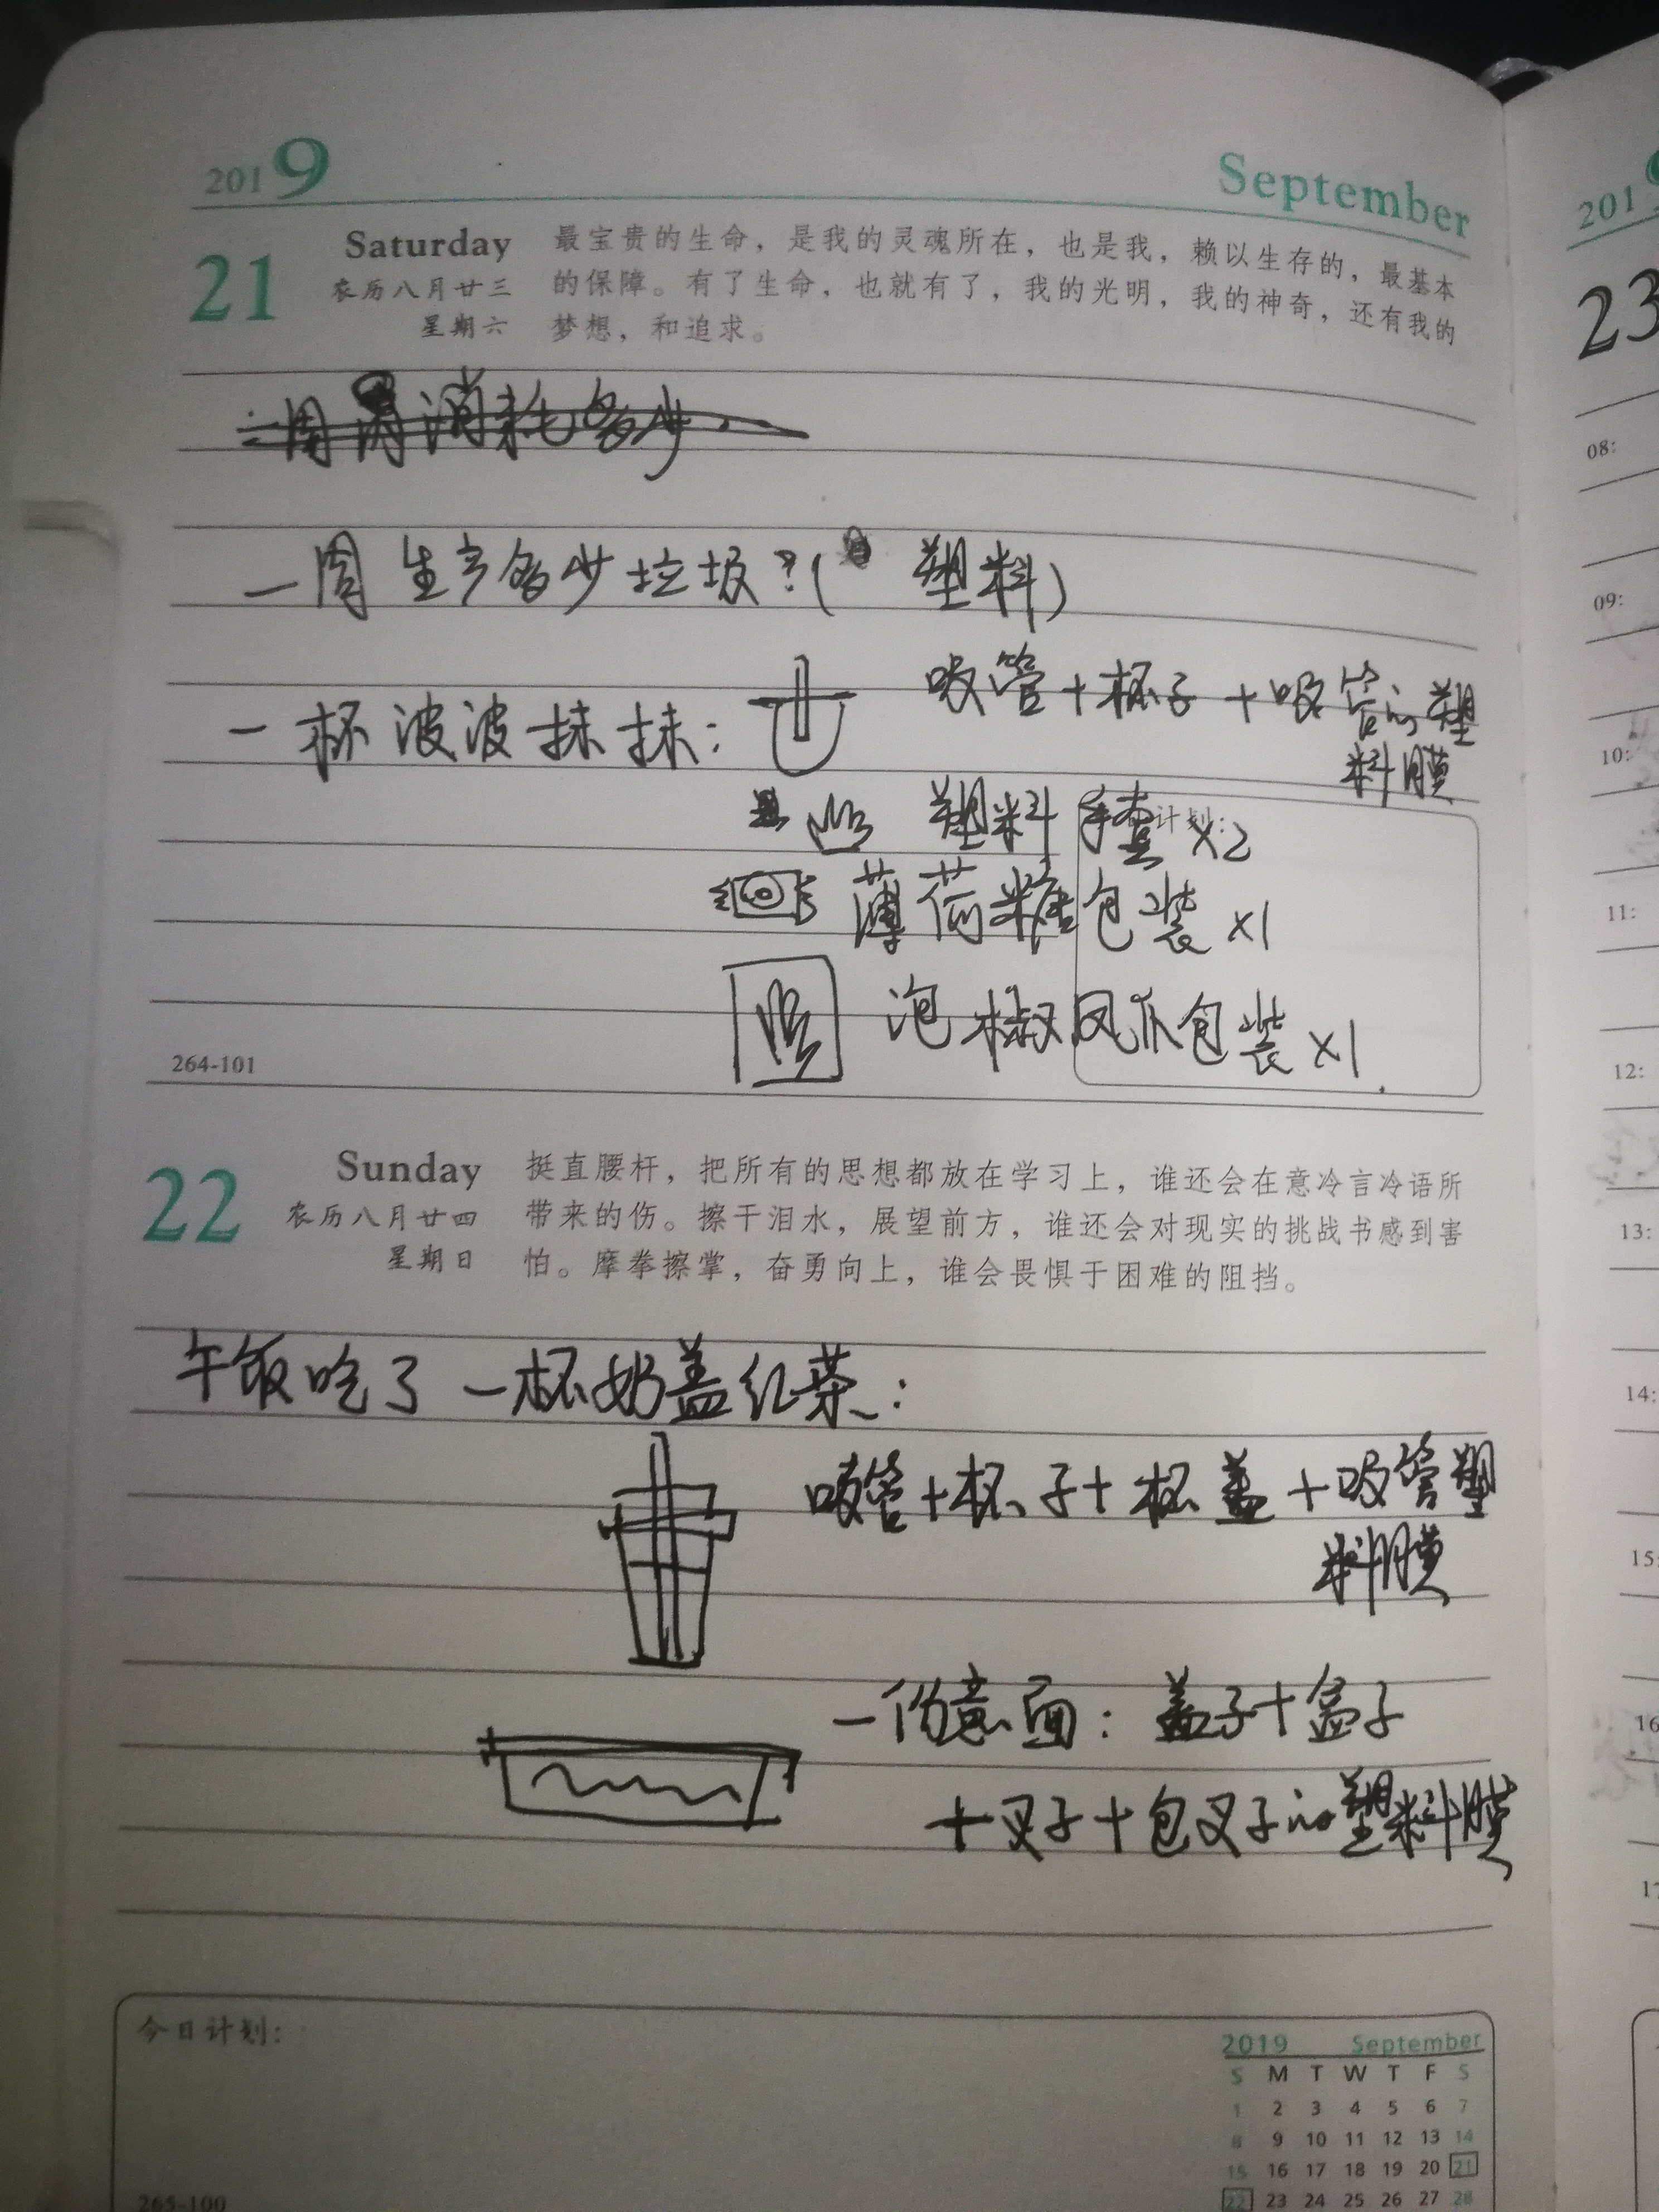 2019 September
21 Saturday 最宝贵的生命，是我的灵魂所在，也是我，赖以生存的，最基本
农历八月廿三 的保障。有了生命，也就有了，我的光明，我的神奇，还有我的
星期六 梦想，和追求。
一周 消耗多少
一周生产多少垃圾？( 塑料)
一杯波波抹抹： 吸管+杯子+吸管的塑
料膜
计划：
塑料手套x2
薄荷糖包装x1
泡椒凤爪包装x1
264-101
22 Sunday 挺直腰杆，把所有的思想都放在学习上，谁还会在意冷言冷语所
农历八月廿四 带来的伤。擦干泪水，展望前方，谁还会对现实的挑战书感到害
星期日 怕。摩拳擦掌，奋勇向上，谁会畏惧于困难的阻挡。
午饭吃了一杯奶盖红茶：
吸管+杯子+杯盖+吸管塑
料膜
一份意面：盖子+盒子
+叉子+包叉子的塑料膜
今日计划：
2019 September
S M T W T F S
1 2 3 4 5 6 7
8 9 10 11 12 13 14
15 16 17 18 19 20 21
22 23 24 25 26 27 28
265-100
201
23
08:
09:
10:
11:
12:
13:
14:
15:
16
17